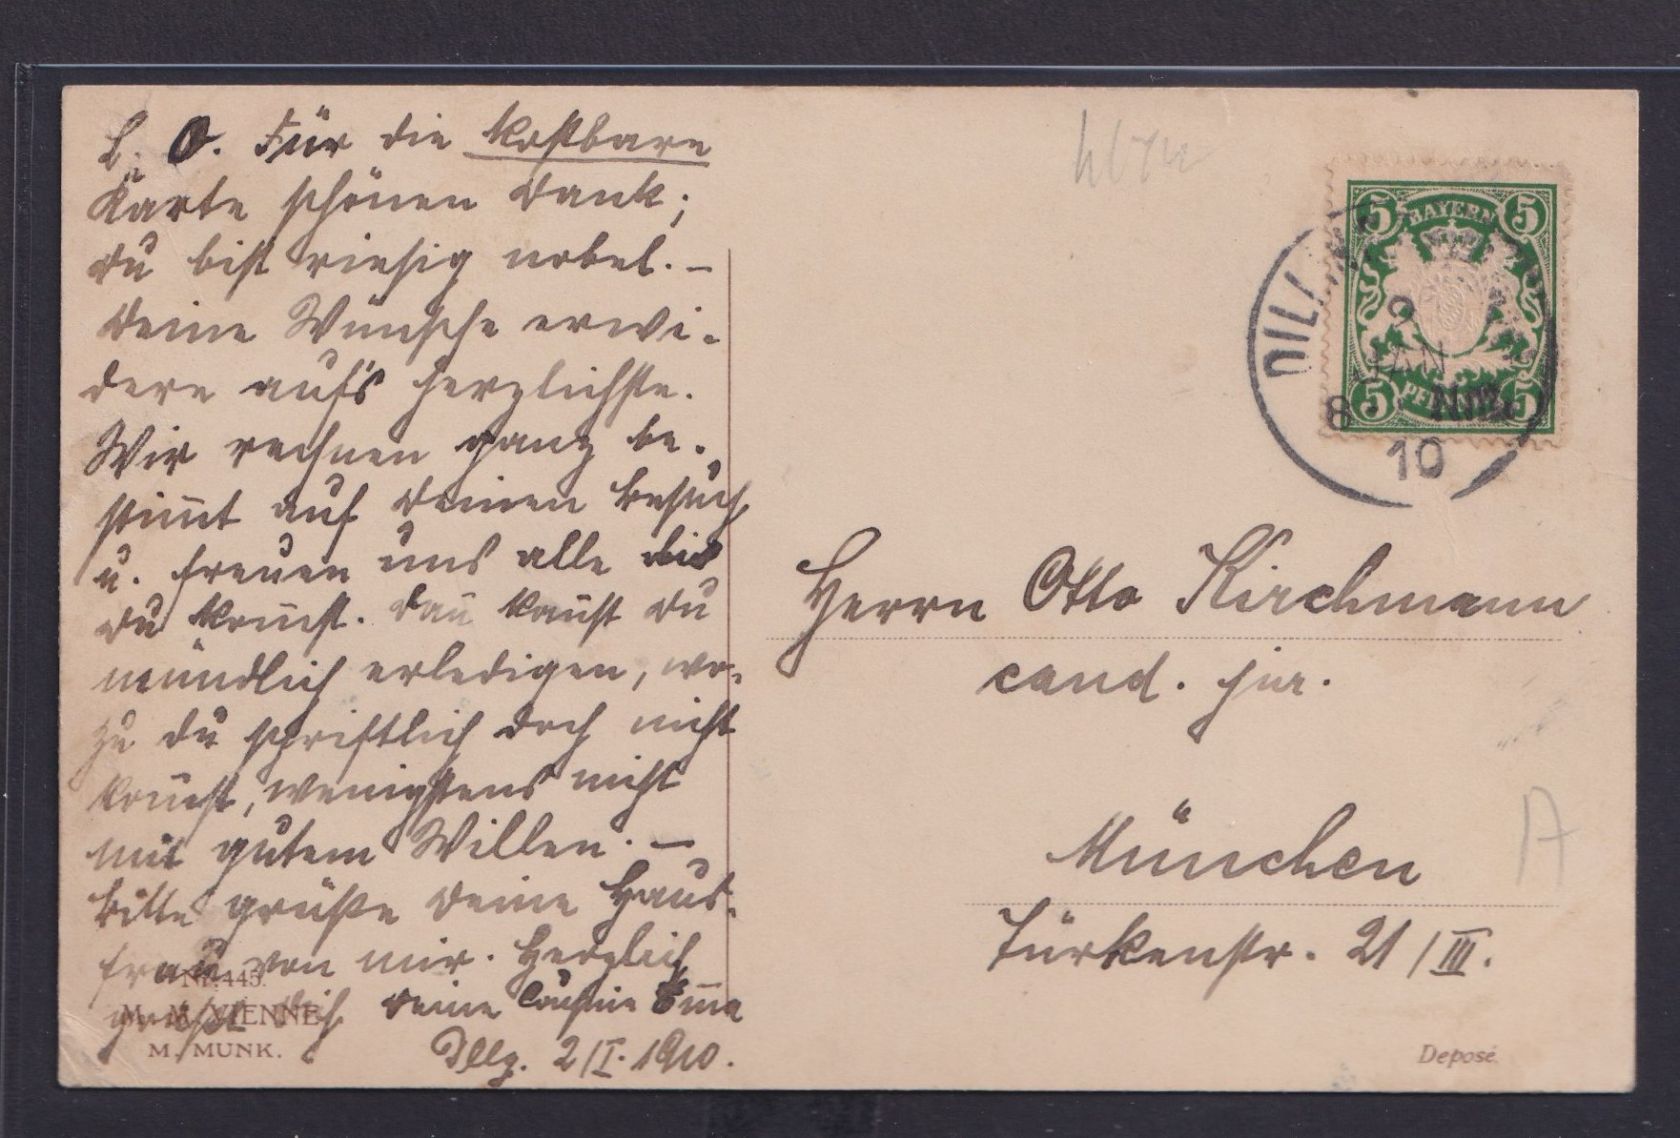 L. O. Für die kostbare
Karte schönen Dank;
Du bist riesig nobel. –
Deine Wünsche erwi-
dere auf's herzlichste.
Wir rechnen ganz be-
stim̅t auf Deinen Besuch
u. freuen uns alle bis
Du kom̅st. Dan̅ kan̅st Du
mündlich erledigen, wo-
zu Du schriftlich doch nicht
kom̅st, wenigstens nicht
mit gutem Willen. –
Bitte grüße Deine Haus-
frau von mir. Herzlich
grüßt Dich Deine Cousine Em̅a
Dllg. 2/I. 1910.
Nr. 445.
M. M. VIENNE
M. MUNK.
BAYERN
5 5
5 PF 5
DILL
2
JAN
8 Nm
10
Herrn Otto Kirchmann
cand. jur.
München
Türkenstr. 21/III.
A
Deposé